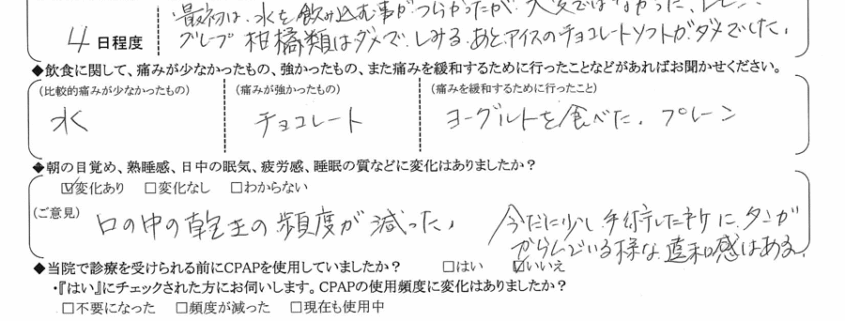 最初は、水を飲み込む事がつらかったが、大変ではなかった、
4日程度 グレープ 柑橘類はダメで、しみる。あと、アイスのチョコレートソフトがダメでした。
◆飲食に関して、痛みが少なかったもの、強かったもの、また痛みを緩和するために行ったことなどがあればお聞かせください。
(比較的痛みが少なかったもの) (痛みが強かったもの) (痛みを緩和するために行ったこと)
水 チョコレート ヨーグルトを食べた。プレーン
◆朝の目覚め、熟睡感、日中の眠気、疲労感、睡眠の質などに変化はありましたか?
☑変化あり □変化なし □わからない
(ご意見) 口の中の乾きの頻度が減った。 今だに少し手術したネケに、タンが
からんでいる様な違和感はある。
◆当院で診療を受けられる前にCPAPを使用していましたか? □はい ☑いいえ
・『はい』にチェックされた方にお伺いします。CPAPの使用頻度に変化はありましたか?
□不要になった □頻度が減った □現在も使用中